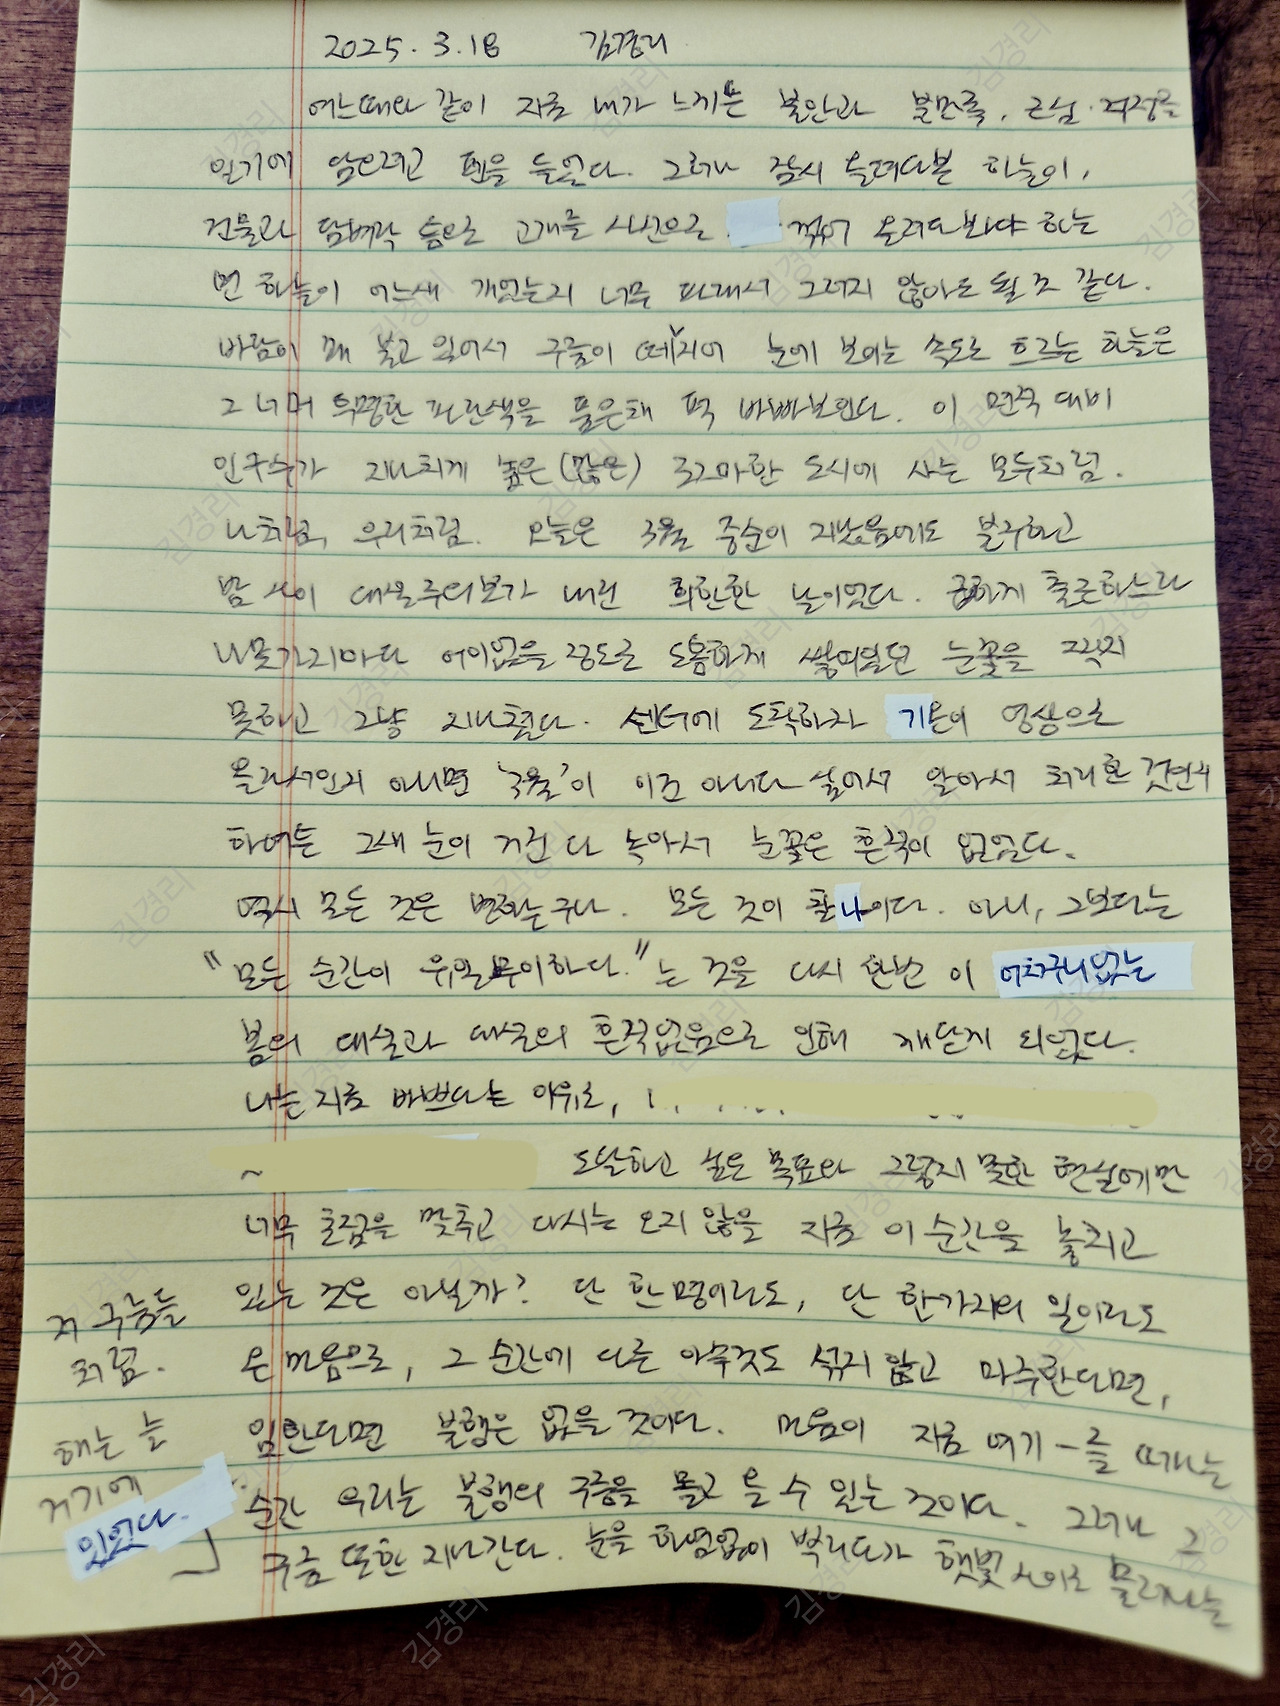 2025. 3. 18 김경리
어느때와 같이 지금 내가 느끼는 불안과 불만족, 근심·걱정을
일기에 담으려고 펜을 들었다. 그러나 잠시 올려다본 하늘이,
건물과 담벼락 숲으로 고개를 꺾어 올려다봐야 하는
먼 하늘이 어느새 개었는지 너무 파래서 그러지 않아도 될 것 같다.
바람이 꽤 불고 있어서 구름이 떼지어 눈에 보이는 속도로 흐르는 하늘은
그 너머 투명한 파란색을 품은채 퍽 바빠보인다. 이 면적 대비
인구수가 지나치게 높은(많은) 조그마한 도시에 사는 모두처럼.
나처럼, 우리처럼. 오늘은 3월 중순이 지났음에도 불구하고
밤 사이 대설주의보가 내린 희한한 날이었다. 급하게 출근하느라
나뭇가지마다 어이없을 정도로 도톰하게 쌓여있던 눈꽃을 찍지
못하고 그냥 지나쳤다. 센터에 도착하자 기온이 영상으로
올라서인지 아니면 '겨울'이 이건 아니다 싶어서 알아서 처리한 것인지
하여튼 그새 눈이 거진 다 녹아서 눈꽃은 흔적이 없었다.
역시 모든 것은 변하는구나. 모든 것이 찰나이다. 아니, 그보다는
"모든 순간이 유일무이하다."는 것을 다시 한번 이 어처구니없는
봄의 대설과 대설의 흔적없음으로 인해 깨닫게 되었다.
나는 지금 바쁘다는 이유로,
도달하고 싶은 목표와 그렇지 못한 현실에만
너무 초점을 맞추고 다시는 오지 않을 지금 이 순간을 놓치고
있는 것은 아닐까? 단 한 명이라도, 단 한가지의 일이라도
온 마음으로, 그 순간에 다른 아무것도 섞지 않고 마주한다면,
임한다면 불행은 없을 것이다. 마음이 지금 여기-를 떠나는
순간 우리는 불행의 구름을 몰고 올 수 있는 것이다. 그러나 그
구름 또한 지나간다. 눈을 하염없이 뿌리다가 햇빛 사이로 물러나는
저 구름들
처럼.
해는 늘
거기에
있었다.